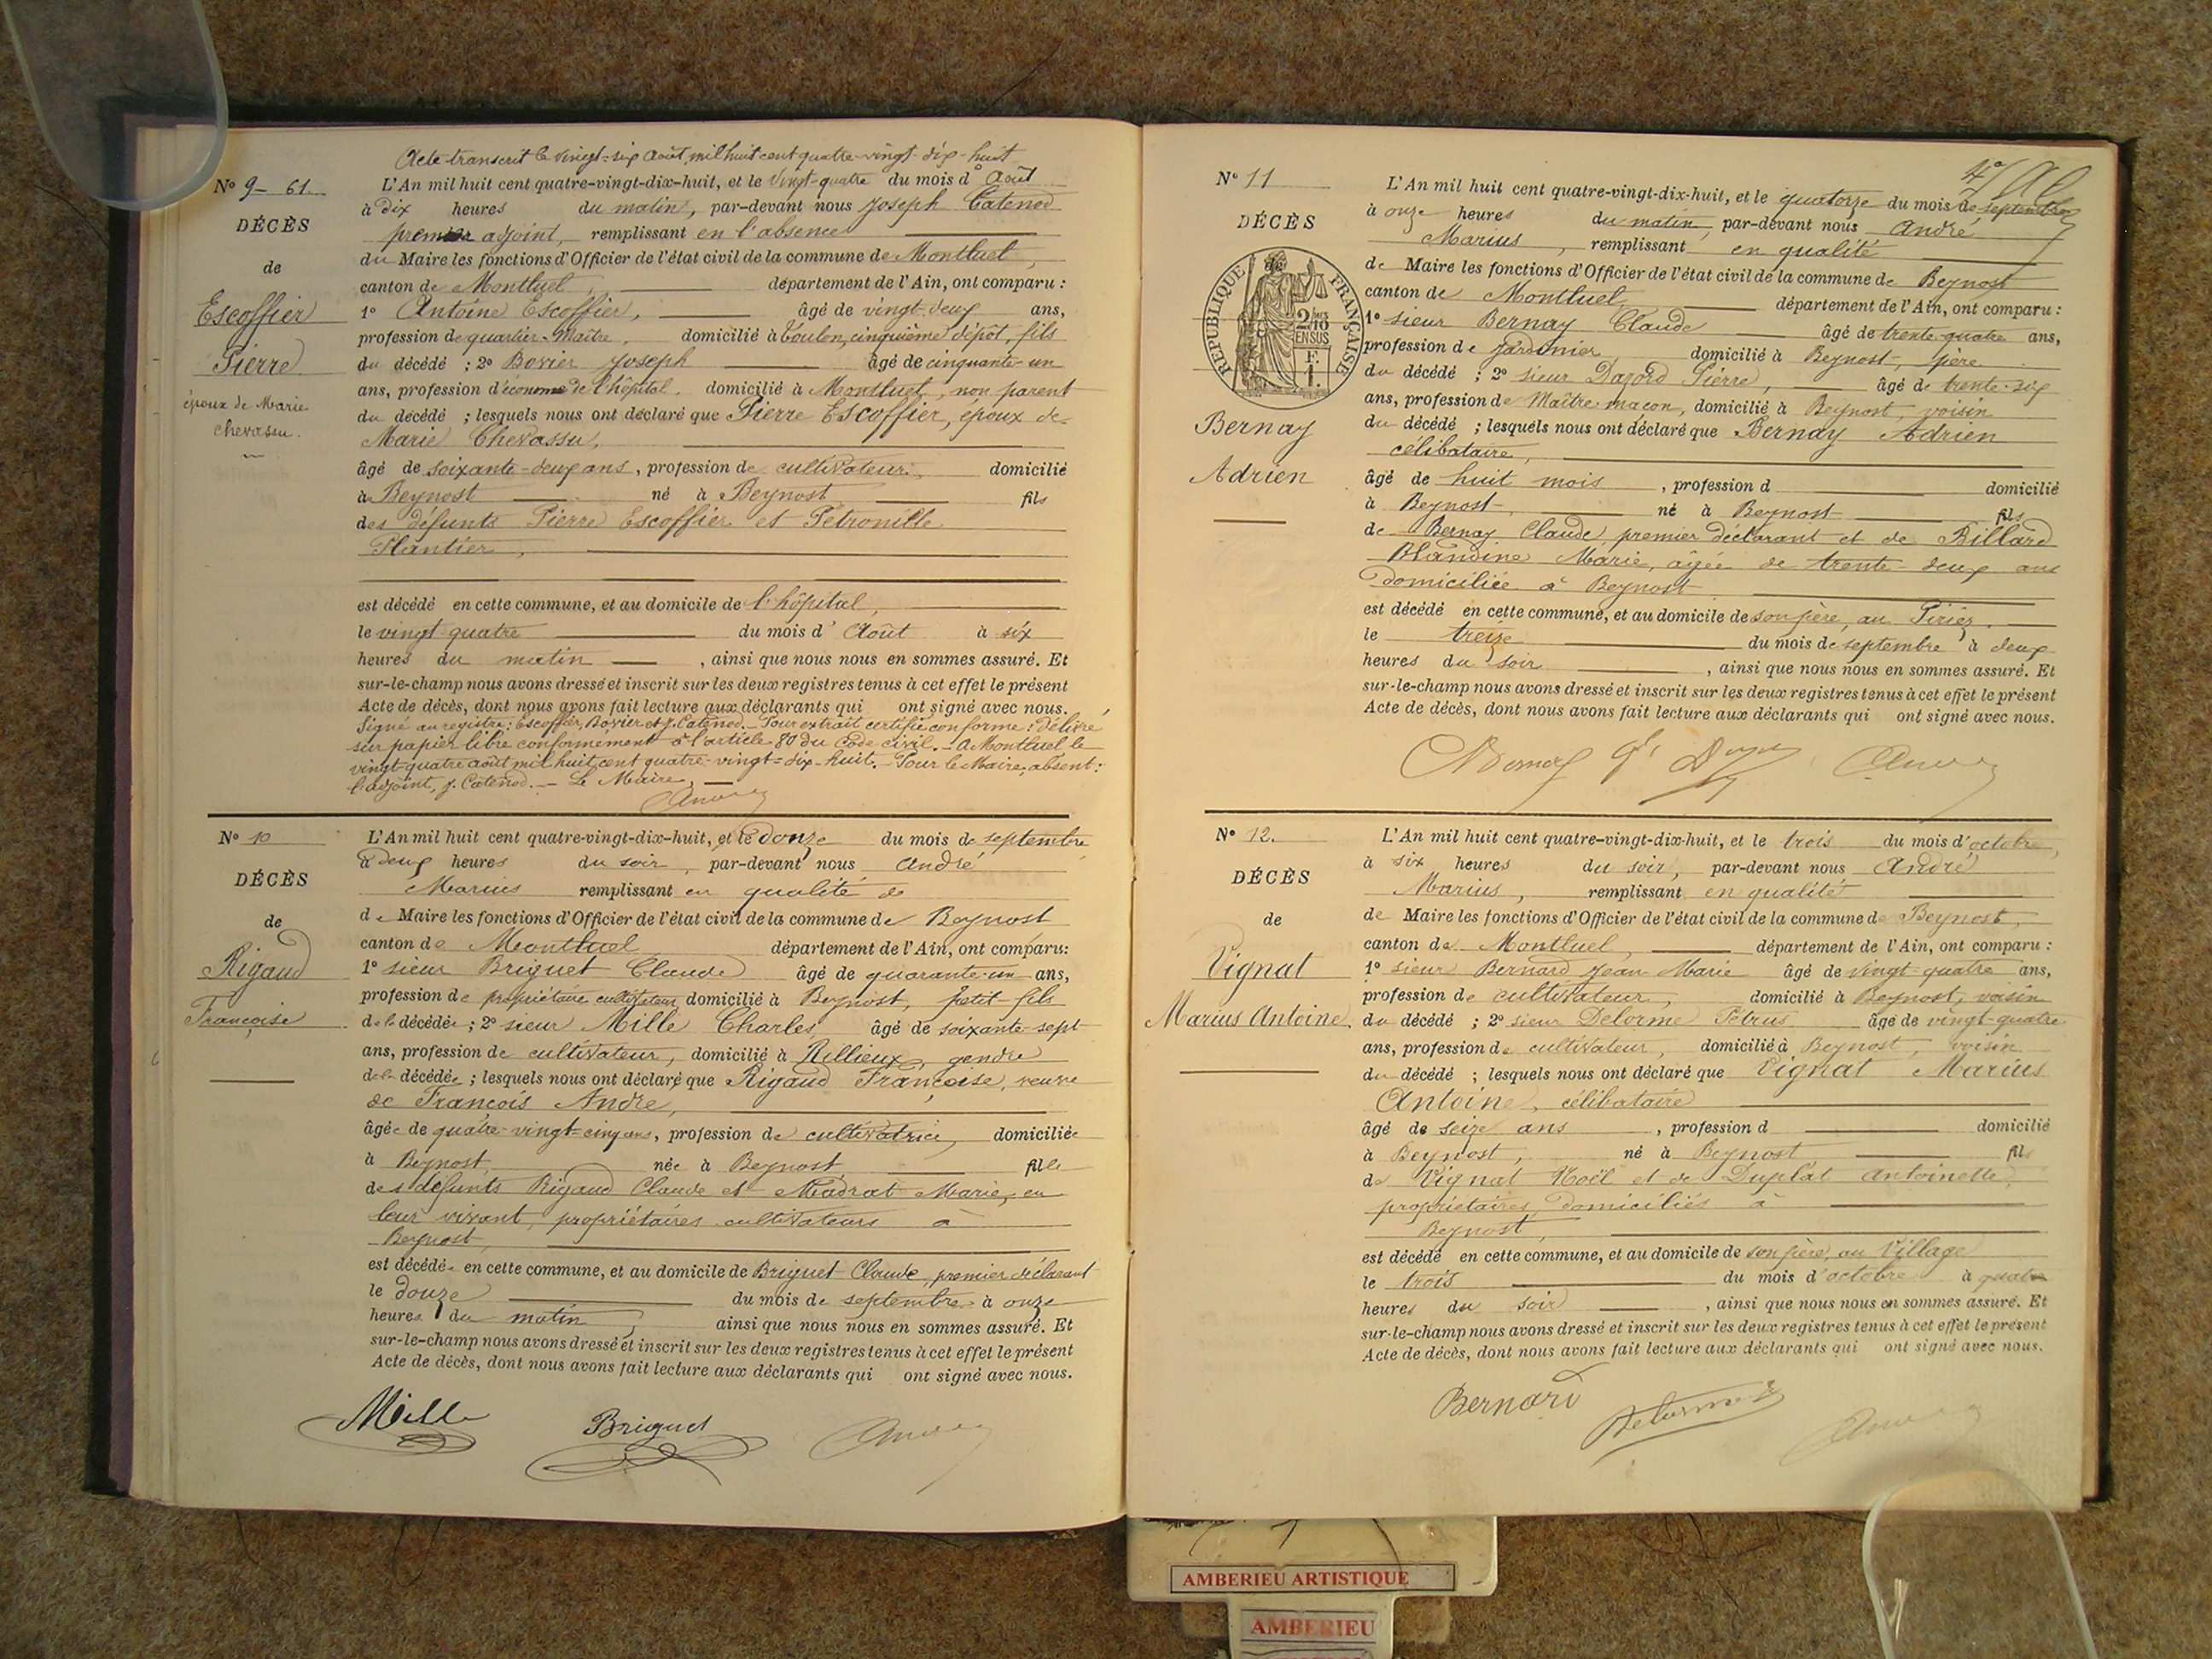 Acte transcrit le vingt-six Août mil huit cent quatre-vingt-dix-huit
N° 9 - 61
DÉCÈS
de
Escoffier
Pierre
époux de Marie
Chevassu.
L'An mil huit cent quatre-vingt-dix-huit, et le vingt-quatre du mois d'Août
à dix heures du matin, par-devant nous Joseph Catenod
premier adjoint, remplissant en l'absence
du Maire les fonctions d'Officier de l'état civil de la commune de Montluel,
canton de Montluel, département de l'Ain, ont comparu :
1° Antoine Escoffier, âgé de vingt-deux ans,
profession de quartier-Maître, domicilié à Toulon, cinquième dépôt, fils
du décédé ; 2° Bovier Joseph âgé de cinquante-un
ans, profession d'économe de l'hôpital. domicilié à Montluel, non parent
du décédé ; lesquels nous ont déclaré que Pierre Escoffier, époux de
Marie Chevassu,
âgé de soixante-deux ans, profession de cultivateur, domicilié
à Beynost né à Beynost fils
des défunts Pierre Escoffier et Petronille
Plantier,
est décédé en cette commune, et au domicile de l'hôpital,
le vingt quatre du mois d'Août à six
heures du matin, ainsi que nous nous en sommes assuré. Et
sur-le-champ nous avons dressé et inscrit sur les deux registres tenus à cet effet le présent
Acte de décès, dont nous avons fait lecture aux déclarants qui ont signé avec nous.
Signé au registre : Escoffier, Bovier et J. Catenod. - Pour extrait certifié conforme : Délivré
sur papier libre conformément à l'article 80 du Code civil. - A Montluel le
vingt-quatre août mil huit cent quatre-vingt-dix-huit. - Pour le Maire, absent :
l'adjoint, J. Catenod. - Le Maire,
N° 10
DÉCÈS
de
Rigaud
Françoise
L'An mil huit cent quatre-vingt-dix-huit, et le douze du mois de septembre
à deux heures du soir, par-devant nous André
Marius remplissant en qualité de
de Maire les fonctions d'Officier de l'état civil de la commune de Beynost
canton de Montluel département de l'Ain, ont comparu:
1° sieur Briguet Claude âgé de quarante-un ans,
profession de propriétaire cultivateur, domicilié à Beynost, petit-fils
de la décédée ; 2° sieur Mille Charles âgé de soixante-sept
ans, profession de cultivateur, domicilié à Rillieux, gendre
de la décédée ; lesquels nous ont déclaré que Rigaud Françoise, veuve
de François André,
âgée de quatre-vingt-cinq ans, profession de cultivatrice, domiciliée
à Beynost, née à Beynost, fille
des défunts Rigaud Claude et Madrat Marie, en
leur vivant, propriétaires cultivateurs à
Beynost,
est décédée en cette commune, et au domicile de Briguet Claude, premier déclarant
le douze du mois de septembre à onze
heures du matin, ainsi que nous nous en sommes assuré. Et
sur-le-champ nous avons dressé et inscrit sur les deux registres tenus à cet effet le présent
Acte de décès, dont nous avons fait lecture aux déclarants qui ont signé avec nous.
Mille Briguet
N° 11
DÉCÈS
RÉPUBLIQUE FRANÇAISE
2/10 EN SUS
Bernay
Adrien
L'An mil huit cent quatre-vingt-dix-huit, et le quatorze du mois de septembre
à onze heures du matin, par-devant nous André
Marius, remplissant en qualité
de Maire les fonctions d'Officier de l'état civil de la commune de Beynost
canton de Montluel département de l'Ain, ont comparu :
1° sieur Bernay Claude âgé de trente-quatre ans,
profession de jardinier, domicilié à Beynost, père
du décédé ; 2° sieur Dagord Pierre, âgé de trente-six
ans, profession de Maître-maçon, domicilié à Beynost, voisin
du décédé ; lesquels nous ont déclaré que Bernay Adrien
célibataire,
âgé de huit mois, profession d domicilié
à Beynost, né à Beynost fils
de Bernay Claude, premier déclarant et de Billard
Blandine Marie, âgée de trente-deux ans
domiciliée à Beynost
est décédé en cette commune, et au domicile de son père, au
le treize du mois de septembre à deux
heures du soir, ainsi que nous nous en sommes assuré. Et
sur-le-champ nous avons dressé et inscrit sur les deux registres tenus à cet effet le présent
Acte de décès, dont nous avons fait lecture aux déclarants qui ont signé avec nous.
N° 12.
DÉCÈS
de
Vignat
Marius Antoine.
L'An mil huit cent quatre-vingt-dix-huit, et le trois du mois d'octobre,
à six heures du soir, par-devant nous André
Marius, remplissant en qualité
de Maire les fonctions d'Officier de l'état civil de la commune de Beynost,
canton de Montluel, département de l'Ain, ont comparu :
1° sieur Bernard Jean Marie âgé de vingt-quatre ans,
profession de cultivateur, domicilié à Beynost, voisin
du décédé ; 2° sieur Delorme Pétrus âgé de vingt-quatre
ans, profession de cultivateur, domicilié à Beynost, voisin
du décédé ; lesquels nous ont déclaré que Vignat Marius
Antoine, célibataire
âgé de seize ans, profession d domicilié
à Beynost, né à Beynost fils
de Vignat Noël et de Duplat Antoinette,
propriétaires, domiciliés à
Beynost,
est décédé en cette commune, et au domicile de son père, au Village
le trois du mois d'octobre à quatre
heures du soir, ainsi que nous nous en sommes assuré. Et
sur-le-champ nous avons dressé et inscrit sur les deux registres tenus à cet effet le présent
Acte de décès, dont nous avons fait lecture aux déclarants qui ont signé avec nous.
Bernard Delorme
AMBERIEU ARTISTIQUE
AMBERIEU